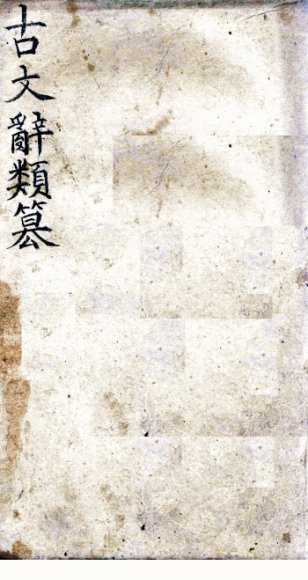 古文辭類篡